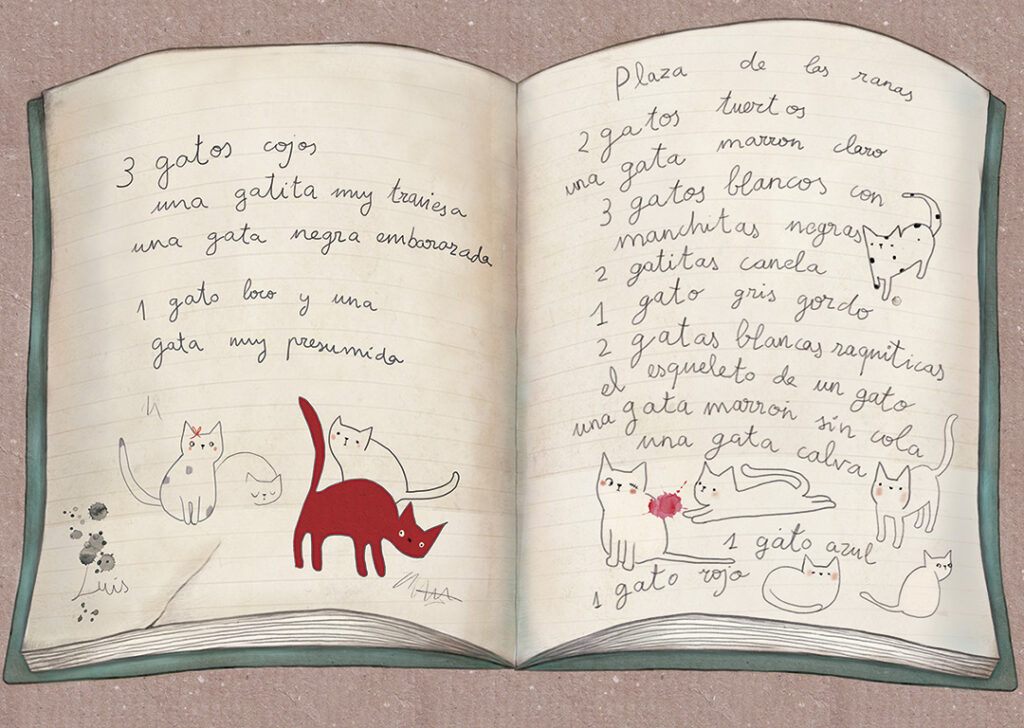 3 gatos cojos
una gatita muy traviesa
una gata negra embarazada
1 gato loco y una
gata muy presumida
Luis
Plaza de las ranas
2 gatos tuertos
una gata marron claro
3 gatos blancos con
manchitas negras
2 gatitas canela
1 gato gris gordo
2 gatas blancas raquiticas
el esqueleto de un gato
una gata marron sin cola
una gata calva
1 gato azul
1 gato rojo